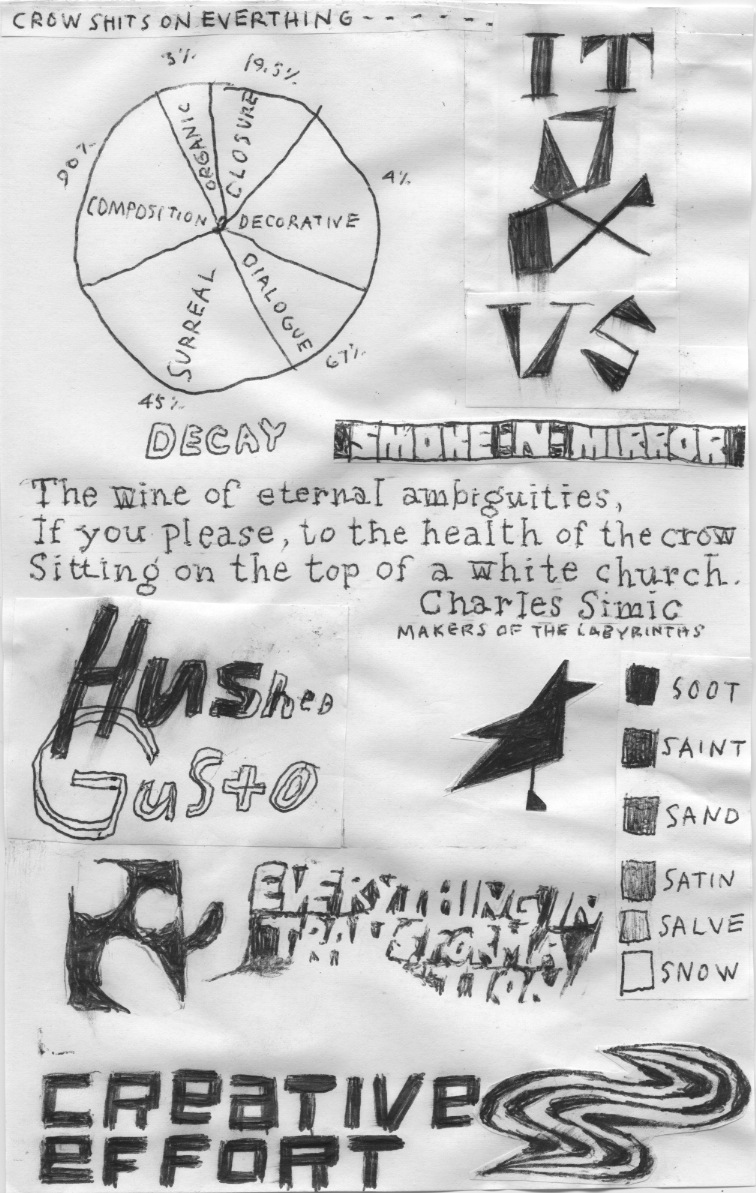 CROW SHITS ON EVERTHING - - - - - - -
3%
19.5%
90%
4%
ORGANIC
CLOSURE
COMPOSITION
DECORATIVE
SURREAL
DIALOGUE
67%
45%
IT
VS
DECAY
SMOKE IN MIRROR
The wine of eternal ambiguities,
If you please, to the health of the crow
Sitting on the top of a white church.
Charles Simic
MAKERS OF THE LABYRINTHS
Hushed
Gusto
SOOT
SAINT
SAND
SATIN
SALVE
SNOW
EVERYTHING IN
TRANSFORMA
TION
CREATIVE
EFFORT